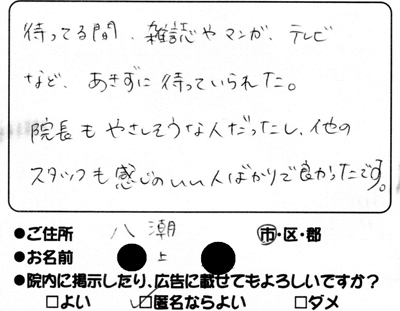 待ってる間、雑誌やマンガ、テレビ
など、あきずに待っていられた。
院長もやさしそうな人だったし、他の
スタッフも感じのいい人ばかりで良かったです。
●ご住所 八潮 市・区・郡
●お名前 上
●院内に掲示したり、広告に載せてもよろしいですか？
□よい □匿名ならよい □ダメ